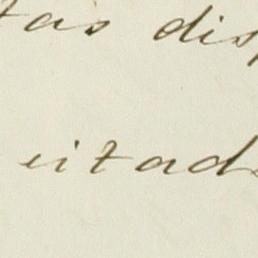 tas dis
citad